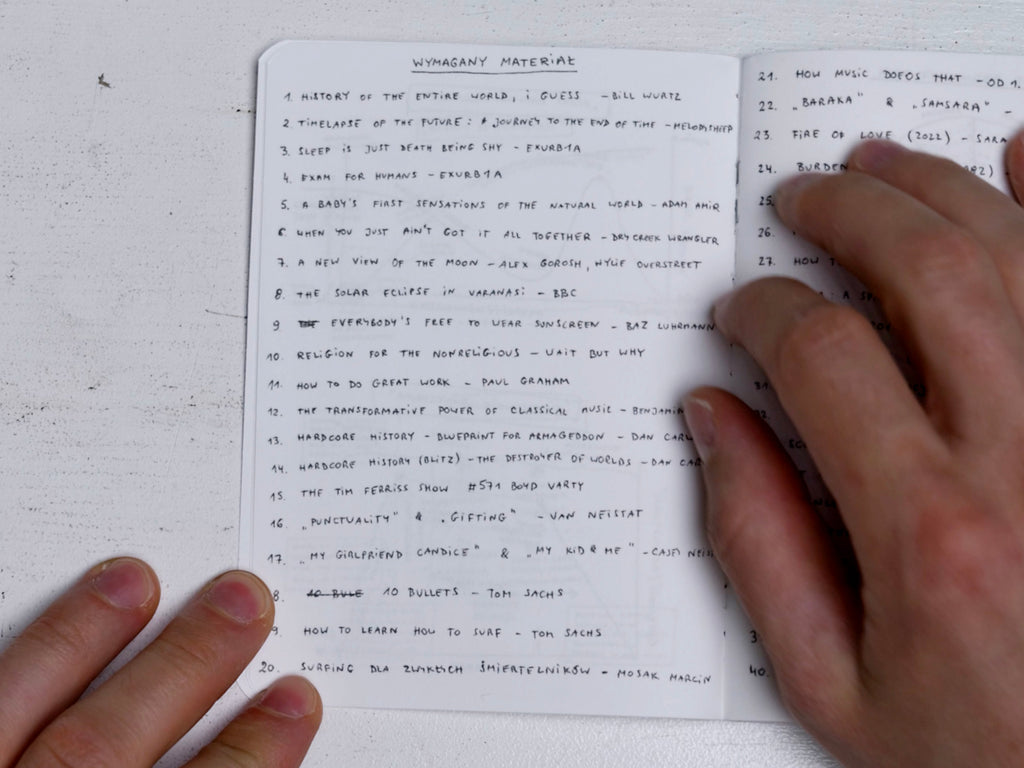 WYMAGANY MATERIAŁ
1. HISTORY OF THE ENTIRE WORLD, i GUESS - BILL WURTZ
2. TIMELAPSE OF THE FUTURE: A JOURNEY TO THE END OF TIME - MELODYSHEEP
3. SLEEP iS JUST DEATH BEING SHY - EXURB1A
4. EXAM FOR HUMANS - EXURB1A
5. A BABY'S FIRST SENSATIONS OF THE NATURAL WORLD - ADAM AMIR
6. WHEN YOU JUST AIN'T GOT IT ALL TOGETHER - DRY CREEK WRANGLER
7. A NEW VIEW OF THE MOON - ALEX GOROSH, WYLIE OVERSTREET
8. THE SOLAR ECLIPSE IN VARANASI - BBC
9. EVERYBODY'S FREE TO WEAR SUNSCREEN - BAZ LUHRMANN
10. RELIGION FOR THE NONRELIGIOUS - WAIT BUT WHY
11. HOW TO DO GREAT WORK - PAUL GRAHAM
12. THE TRANSFORMATIVE POWER OF CLASSICAL MUSIC - BENJAMIN
13. HARDCORE HISTORY - BLUEPRINT FOR ARMAGEDDON - DAN
14. HARDCORE HISTORY (BLITZ) - THE DESTROYER OF WORLDS - DAN
15. THE TIM FERRISS SHOW #571 BOYD VARTY
16. „PUNCTUALITY" & „GIFTING" - VAN NEISTAT
17. „MY GIRLFRIEND CANDICE" & „MY KID & ME" - CASEY
8. 10 BULE 10 BULLETS - TOM SACHS
9. HOW TO LEARN HOW TO SURF - TOM SACHS
20. SURFING DLA ZWYKŁYCH ŚMIERTELNIKÓW - MOSAK MARCIN
21. HOW MUSIC DOEOS THAT - OD 1.
22. „BARAKA" & „SAMSARA" -
23. FIRE OF LOVE (2022) - SARA
24. BURDEN
25.
26.
27. HOW
40.